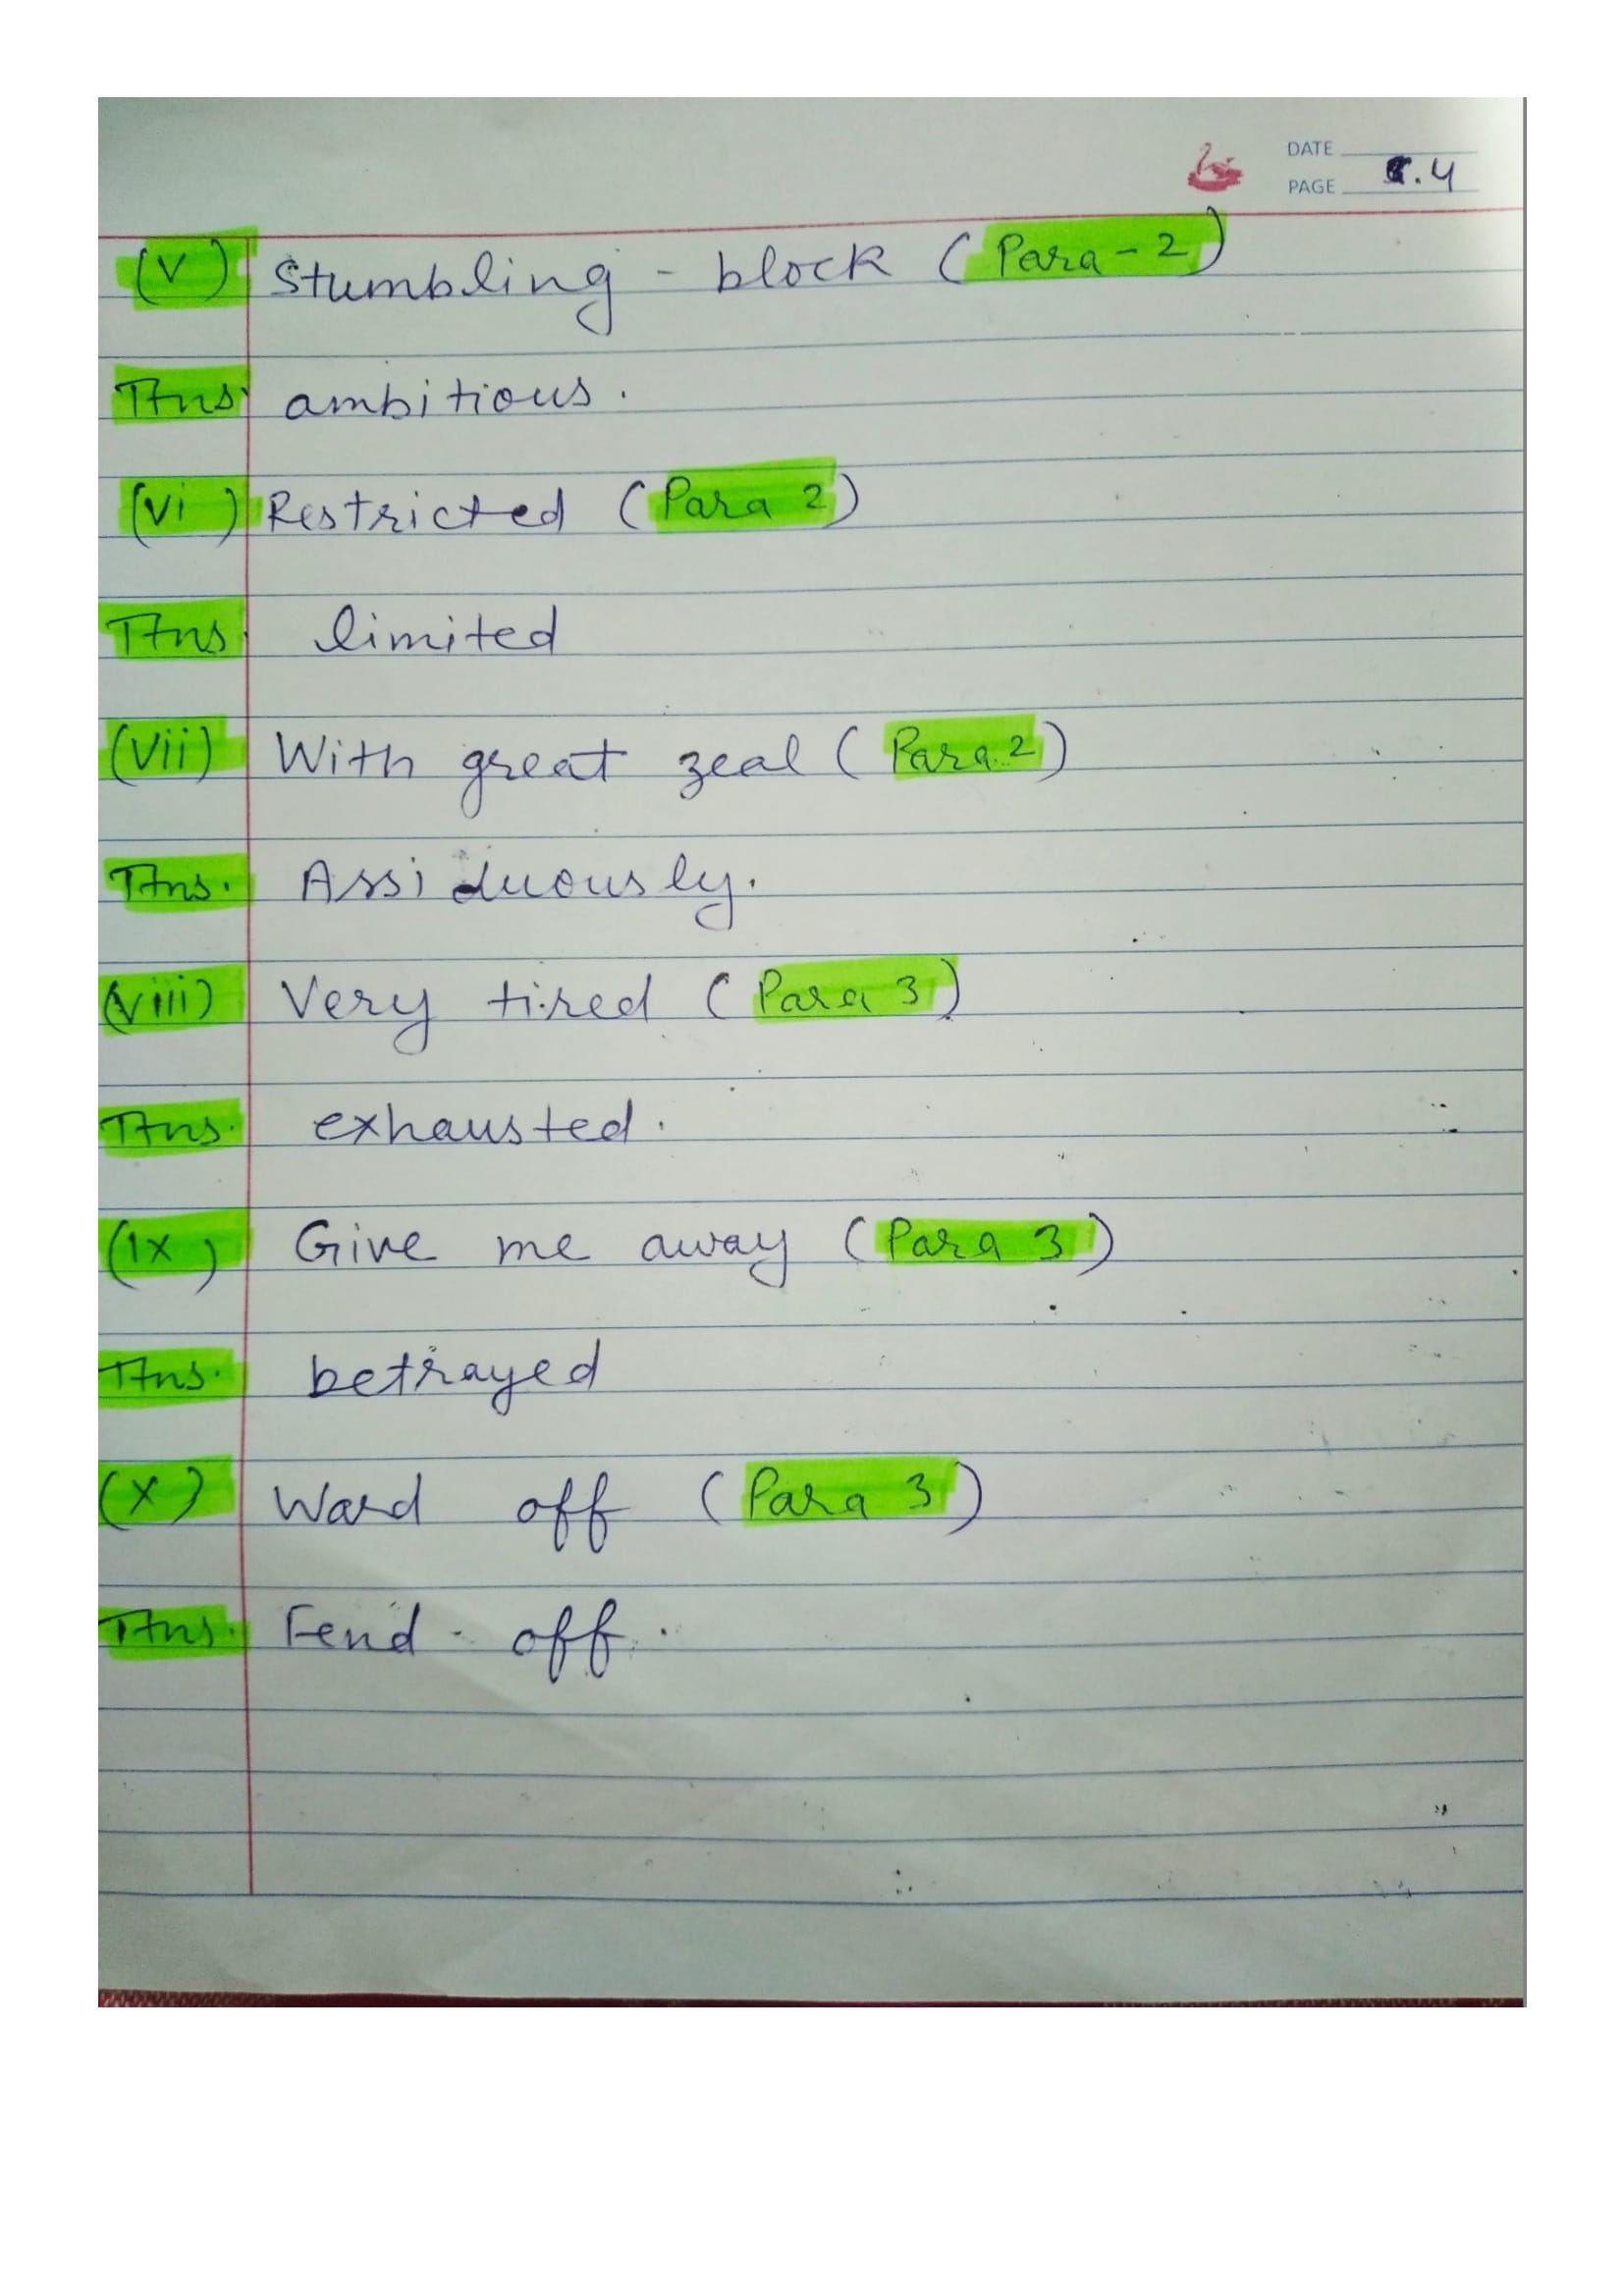 DATE
PAGE .4
(v) Stumbling - block (Para - 2)
Ans. ambitious.
(vi) Restricted (Para 2)
Ans. limited
(vii) With great zeal (Para 2)
Ans. Assiduously.
(viii) Very tired (Para 3)
Ans. exhausted.
(ix) Give me away (Para 3)
Ans. betrayed
(x) Ward off (Para 3)
Ans. Fend - off.